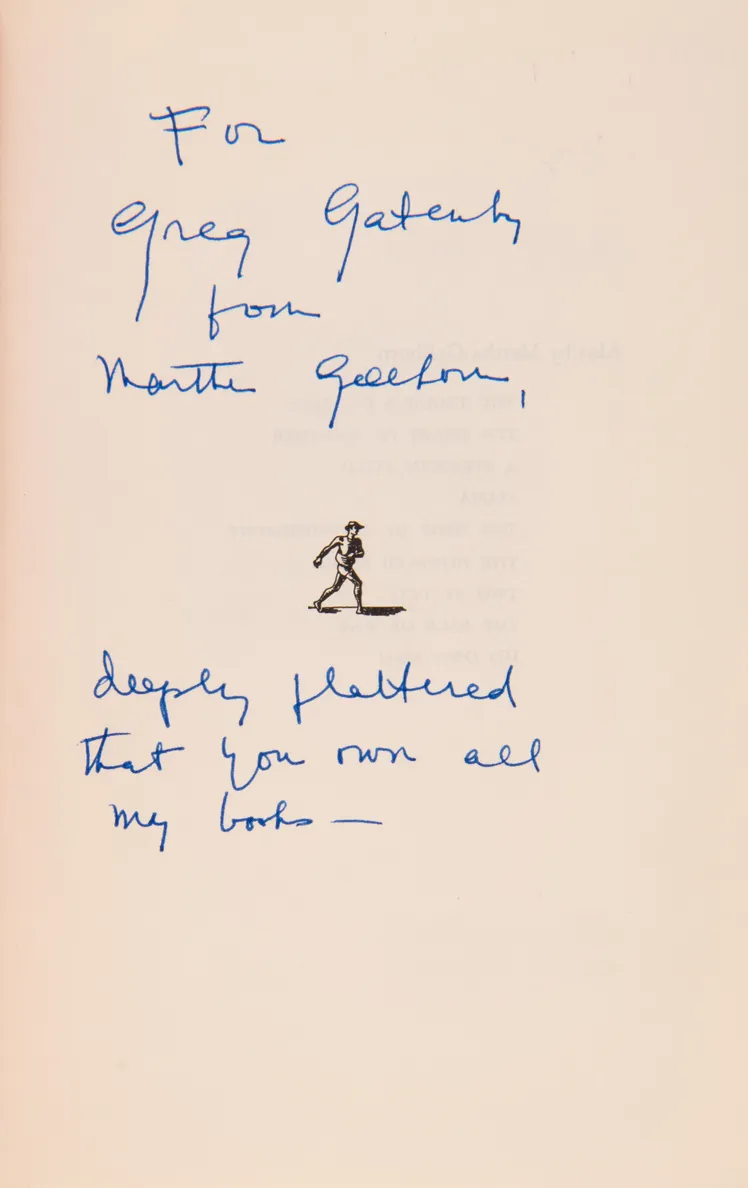 For
Greg Gatenby
from
Martha Gellhorn,
deeply flattered
that you own all
my books —